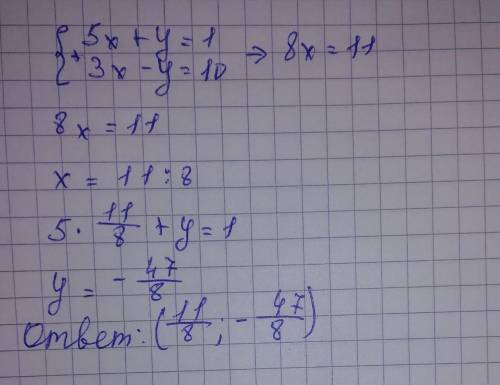 { 5x + y = 1
+ 3x - y = 10 => 8x = 11
8x = 11
x = 11 : 8
5 · 11/8 + y = 1
y = - 47/8
Ответ: (11/8 ; - 47/8)